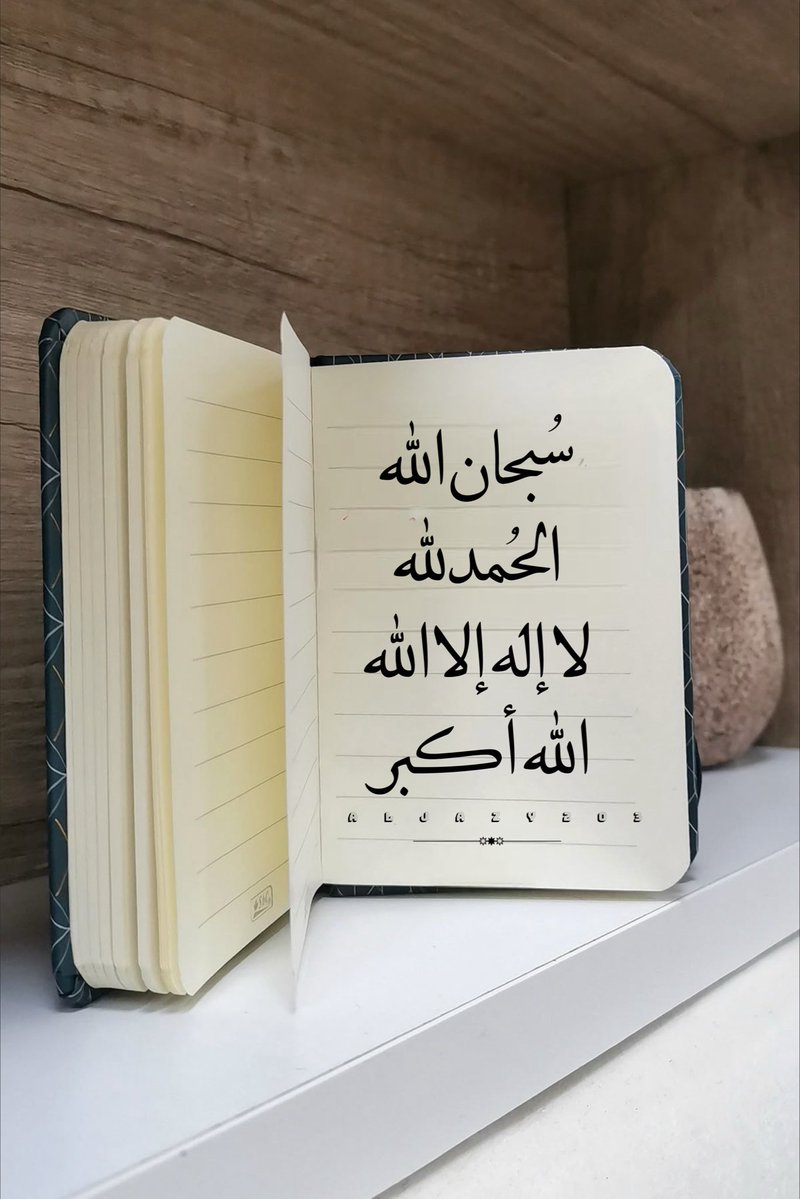 سُبحان الله
الحُمدلله
لا إله إلا الله
الله أكبر
ALJAZY203